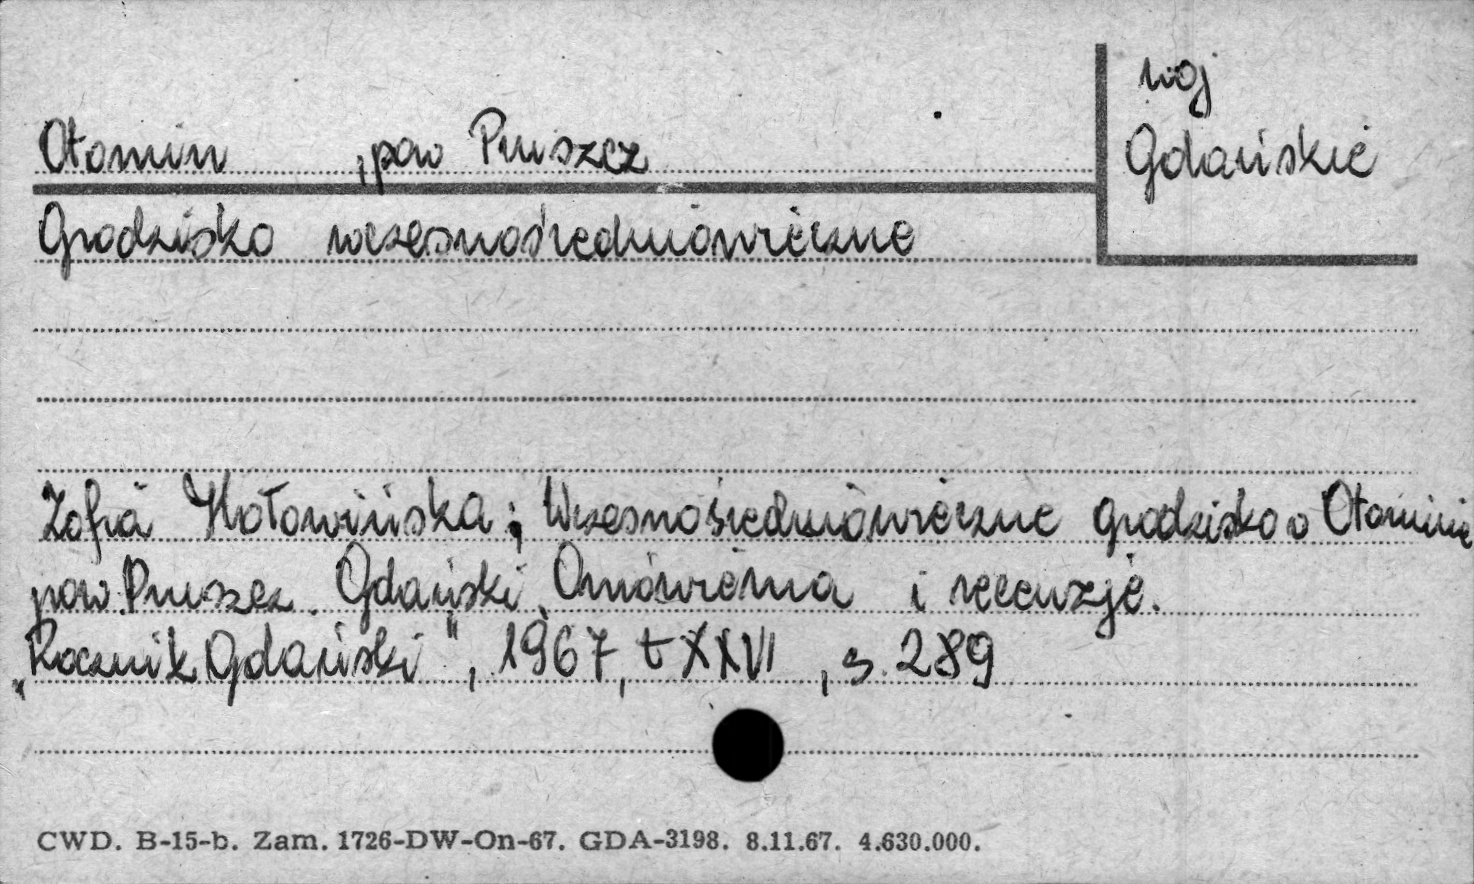 woj
Gdańskie
Otomin , pow Pruszcz
Grodzisko wczesnośredniowieczne
Zofia Hołowińska; Wczesnośredniowieczne grodzisko o Otominie
pow. Pruszcz Gdański. Omówienia i recenzje.
„Rocznik Gdański", 1967, t XXVI, s. 289
CWD. B-15-b. Zam. 1726-DW-On-67. GDA-3198. 8.11.67. 4.630.000.